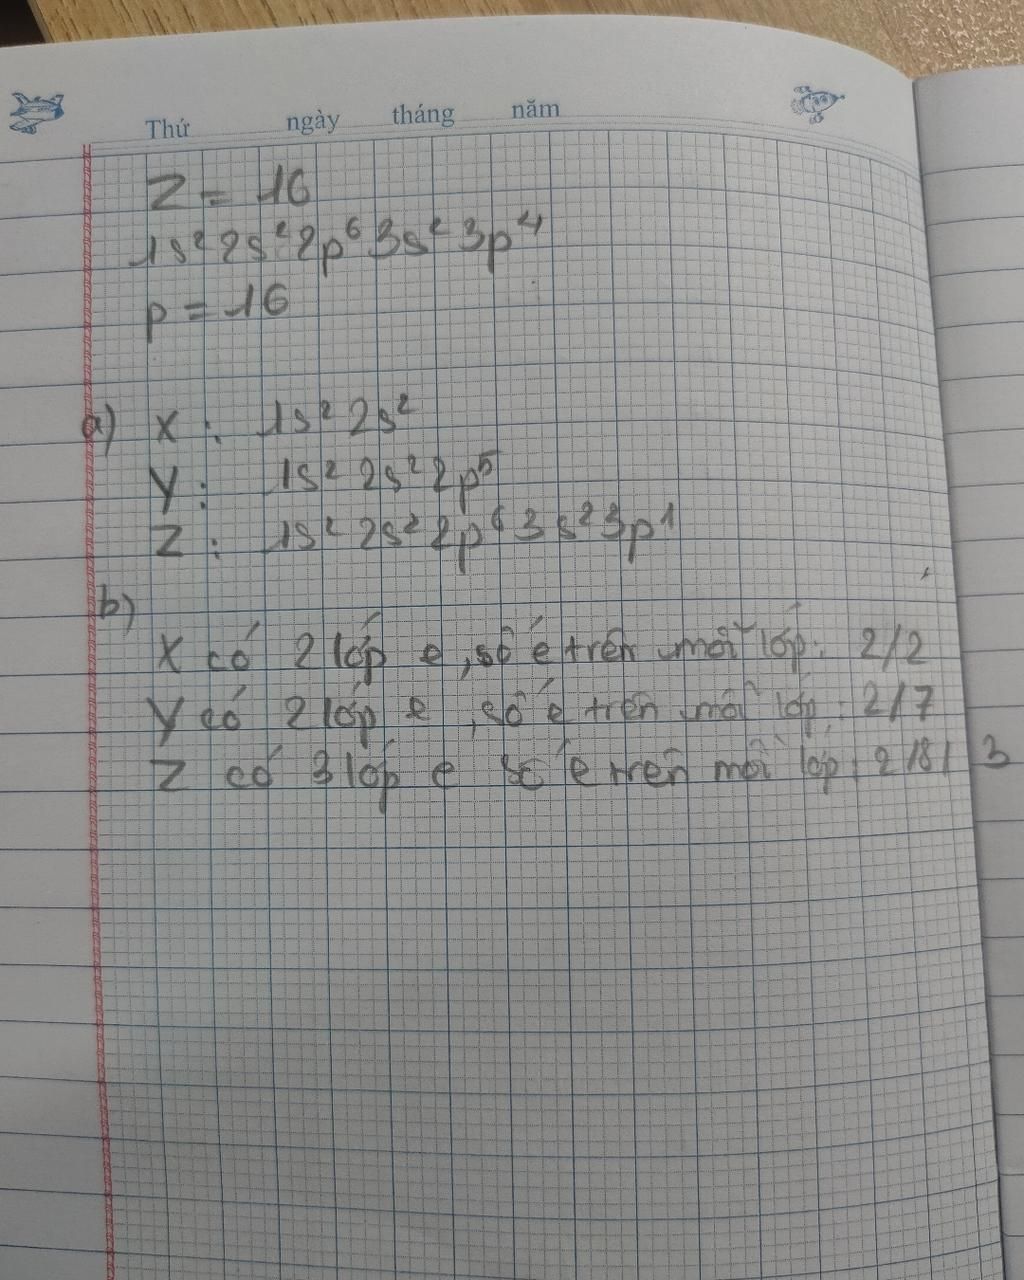 Thứ ngày tháng năm
Z = 16
1s² 2s² 2p⁶ 3s² 3p⁴
p = 16
a) X : 1s² 2s²
Y : 1s² 2s² 2p⁵
Z : 1s² 2s² 2p⁶ 3s² 3p¹
b)
X có 2 lớp e, số e trên mỗi lớp : 2/2
Y có 2 lớp e, số e trên mỗi lớp : 2/7
Z có 3 lớp e số e trên mỗi lớp : 2/8/3